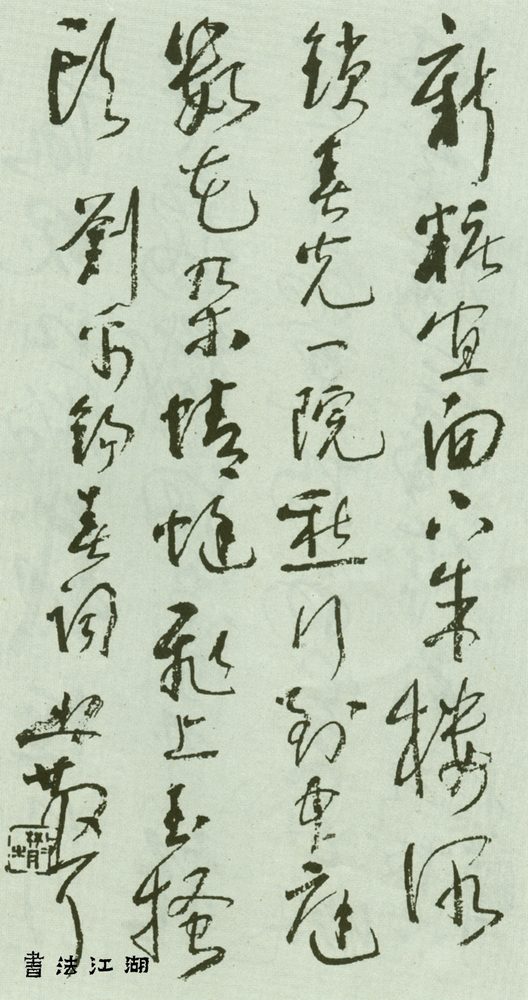 新妆宜面下朱楼深
鎖春光一院愁行到中庭
數花朵蜻蜓飛上玉搔
頭 劉禹錫春詞 林散
書法江湖